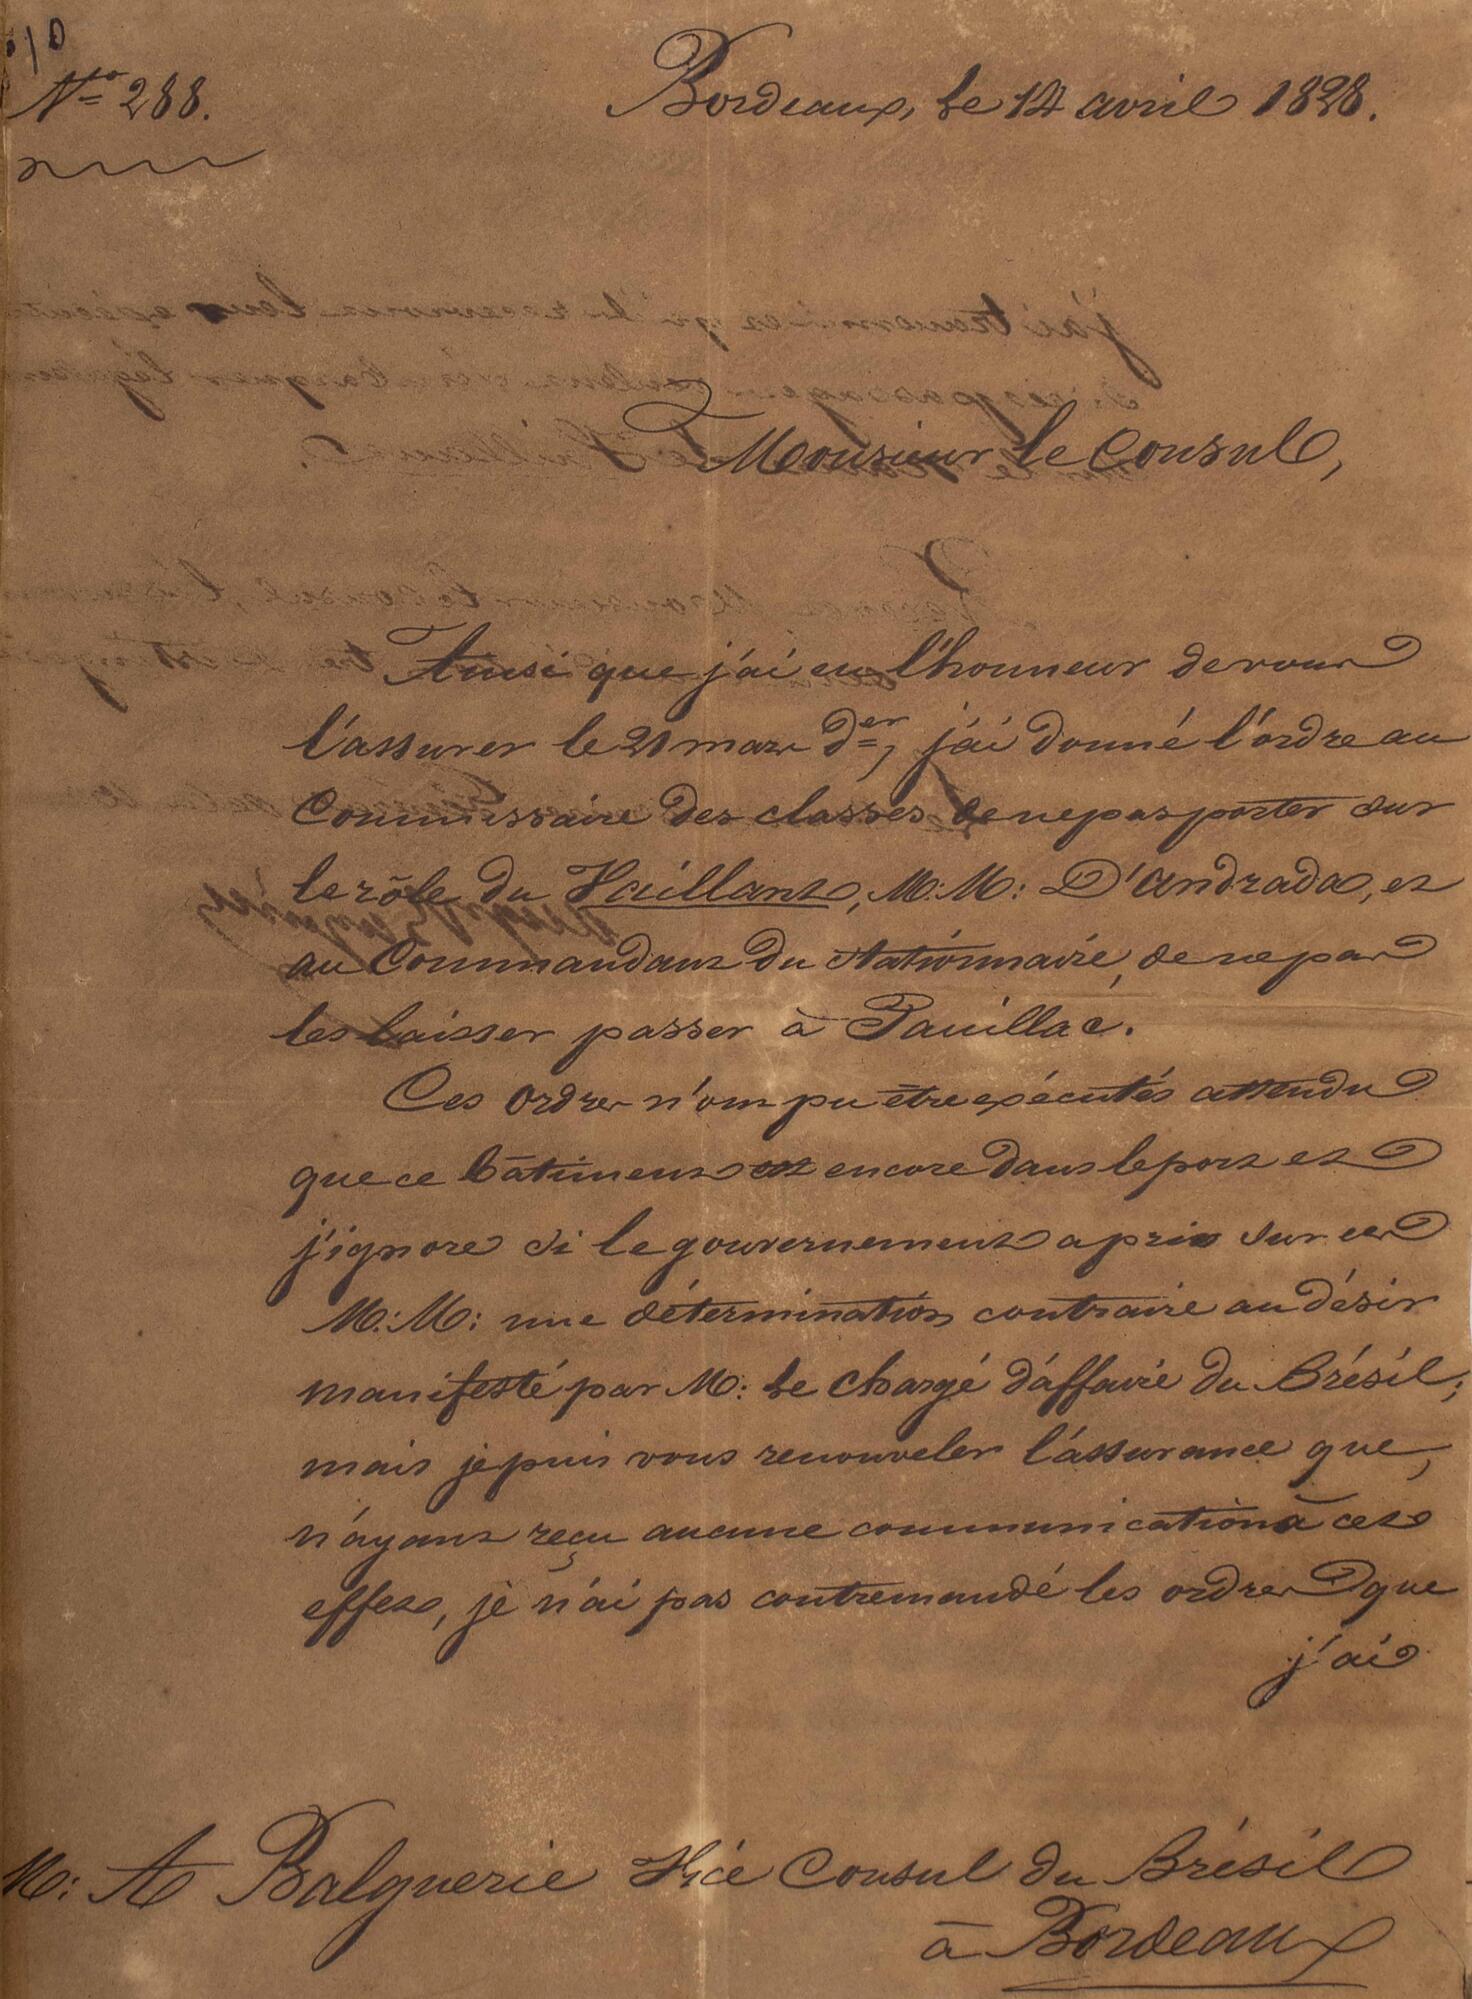 Nto 288.
Bordeaux, le 14 avril 1828.
Monsieur le Consul,
Ainsi que j'ai eu l'honneur de vous
l'assurer le 21 mars der, j'ai donné l'ordre au
Commissaire des classes de ne pas porter sur
le rôle du Vaillant, M.M: D'Andrada, et
au Commandant du stationnaire, de ne pas
les laisser passer à Pauillac.
Ces ordres n'ont pu être exécutés attendu
que ce bâtiment est encore dans le port et
j'ignore si le gouvernement a pris sur ces
M.M: une détermination contraire au désir
manifesté par M: le chargé d'affaire du Brésil;
mais je puis vous renouveler l'assurance que,
n'ayant reçu aucune communication à cet
effet, je n'ai pas contremandé les ordres que
j'ai
M: A Balguerie Vice Consul du Brésil
à Bordeaux